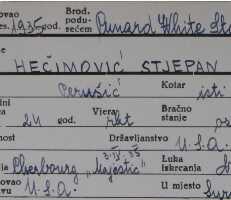 ovao
es. 1935 god. Brod. podu-rećem Cunard White Sta
e
HEČIMOVIĆ STJEPAN
Perušić Kotar isti
ni
ca 24 god. Vjera: rkt Bračno stanje
nost Državljanstvo U.S.A.
3.IV.35
ja Cherbourg "Majestic" Luka iskrcanja
ovao
u U.S.A. U mjesto